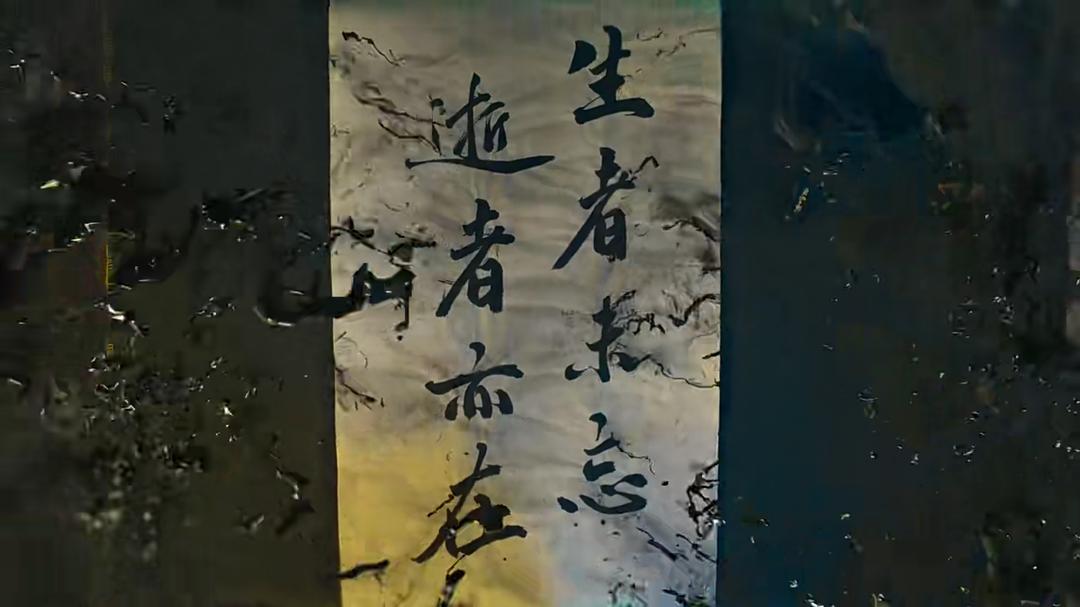 生者未忘
逝者亦在